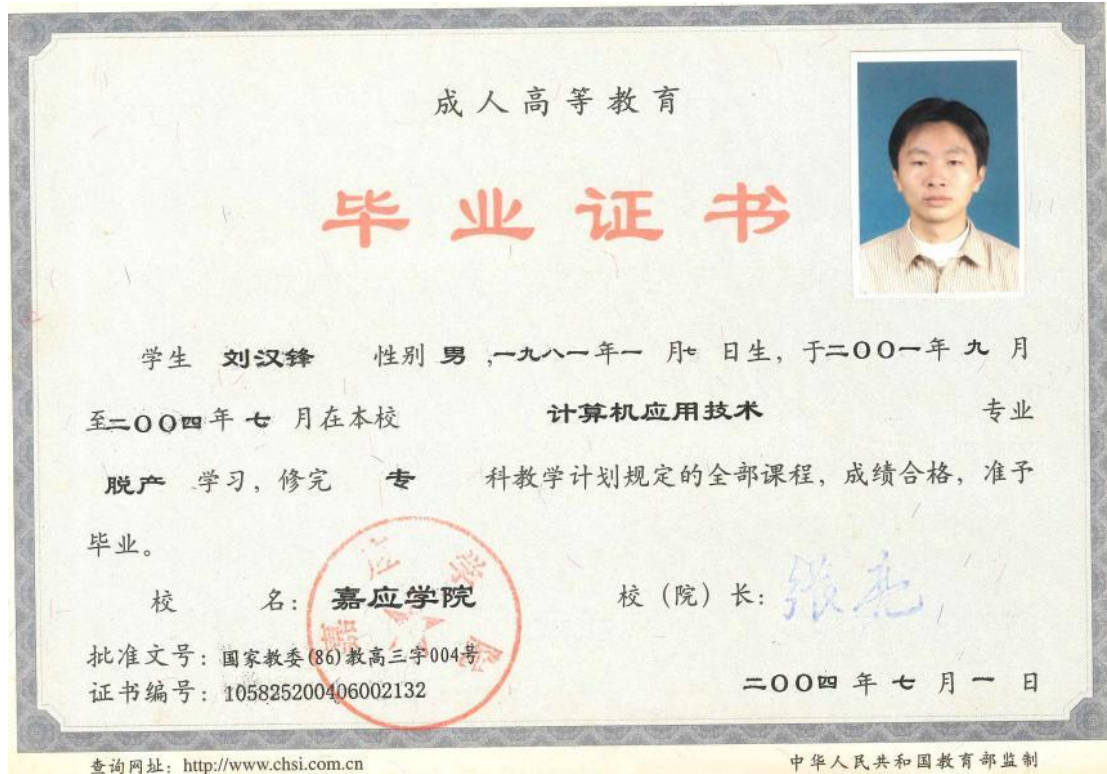 成人高等教育
毕业证书
学生 刘汉锋 性别 男 ,一九八一年一 月七 日生，于二00一年 九 月
至二00四年 七 月在本校 计算机应用技术 专业
脱产 学习，修完 专 科教学计划规定的全部课程，成绩合格，准予
毕业。
校 名：嘉应学院 校（院）长：张亮
嘉应学院
批准文号：国家教委(86)教高三字004号
证书编号：105825200406002132 二00四 年 七 月 一 日
查询网址：http://www.chsi.com.cn 中华人民共和国教育部监制